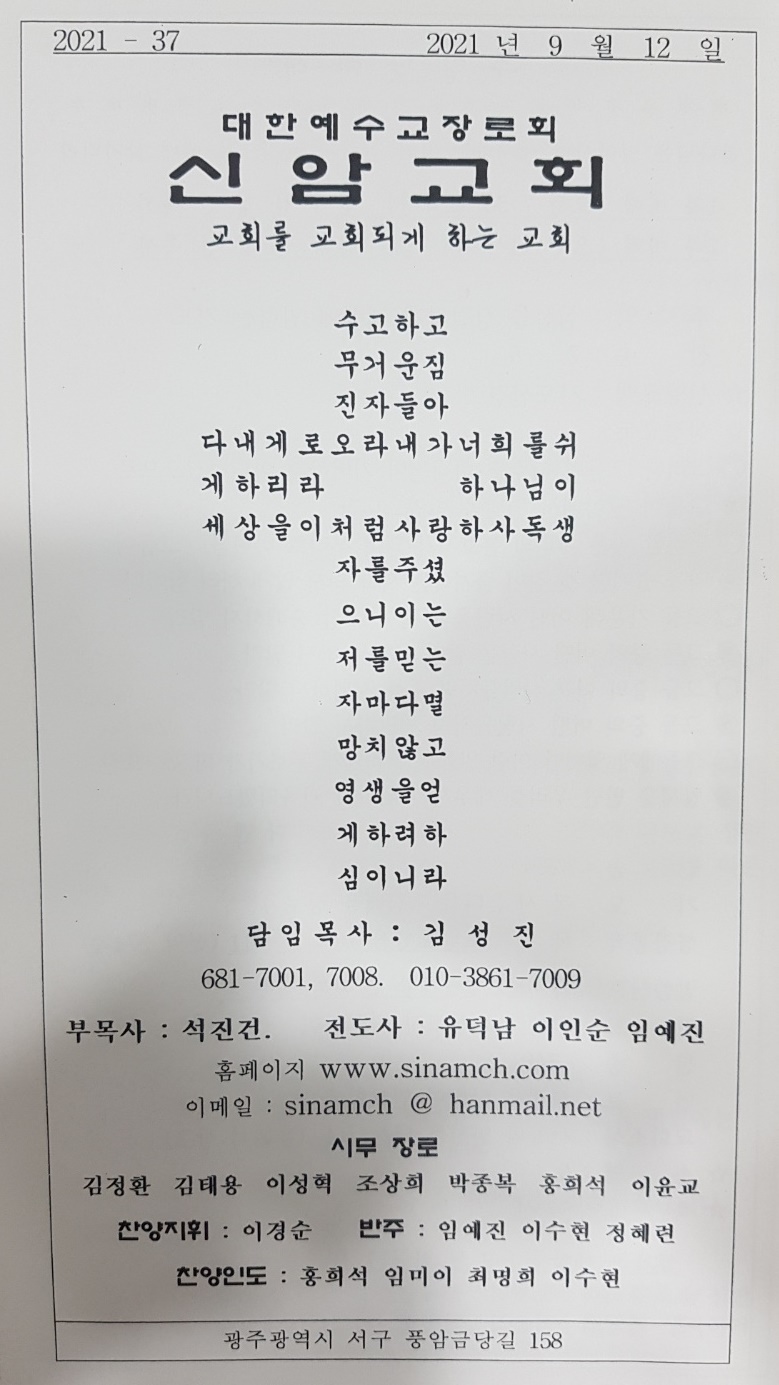 2021 - 37 2021 년 9 월 12 일
대한예수교장로회
신암교회
교회를 교회되게 하는 교회
수고하고
무거운짐
진자들아
다내게로오라내가너희를쉬
게하리라 하나님이
세상을이처럼사랑하사독생
자를주셨
으니이는
저를믿는
자마다멸
망치않고
영생을얻
게하려하
심이니라
담임목사 : 김 성 진
681-7001, 7008. 010-3861-7009
부목사 : 석진건. 전도사 : 유덕남 이인순 임예진
홈페이지 www.sinamch.com
이메일 : sinamch @ hanmail.net
시무 장로
김정환 김태용 이성혁 조상희 박종복 홍희석 이윤교
찬양지휘 : 이경순 반주 : 임예진 이수현 정혜련
찬양인도 : 홍희석 임미이 최명희 이수현
광주광역시 서구 풍암금당길 158